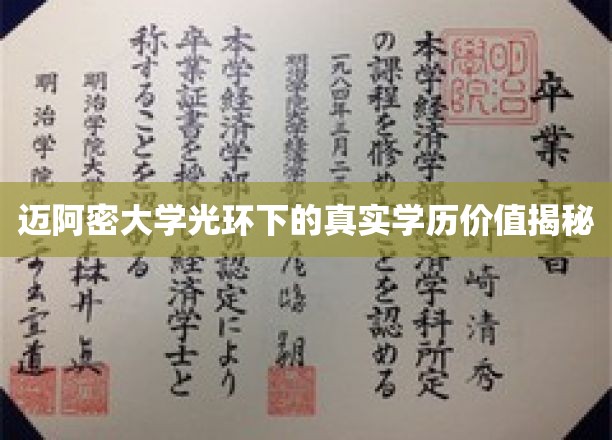 卒業 書
明治學院
本学経済学部 済学科所定
の課程を修め ことを認める
崎清秀
一九八四年三月二
明治学院大学経済学部
本学経済学部 の認定により
卒業証書を 経済学士と
称することを認める
明治学院大学 井眞
明治学院
迈阿密大学光环下的真实学历价值揭秘